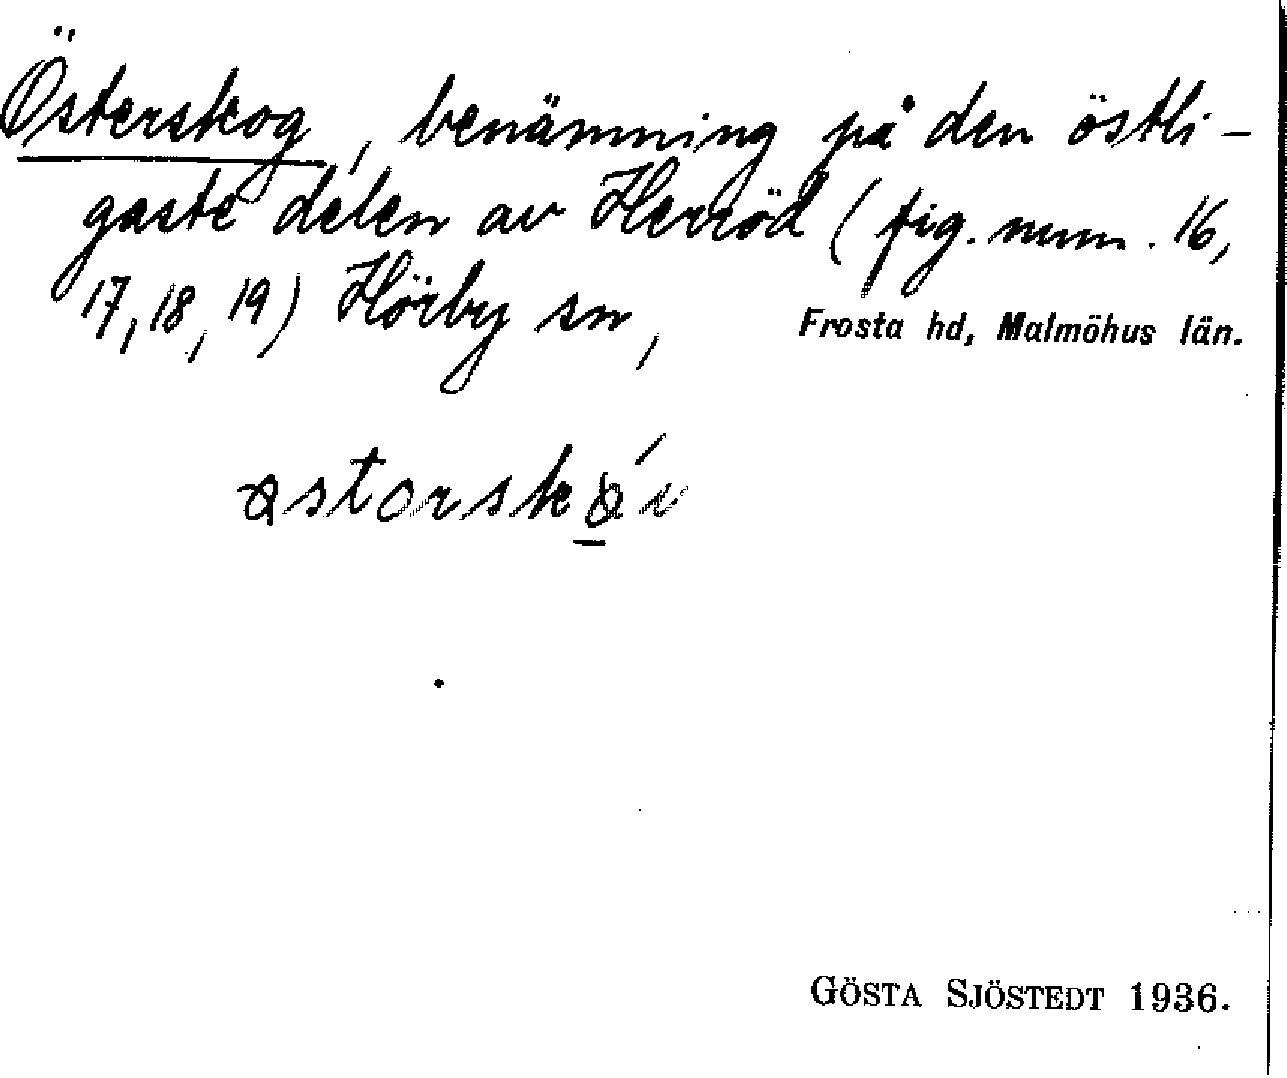 Österskog, benämning på den östli-
gaste delen av Herröd (fig. num. 16,
17, 18, 19) Hörby sn, Frosta hd, Malmöhus län.
GÖSTA SJÖSTEDT 1936.